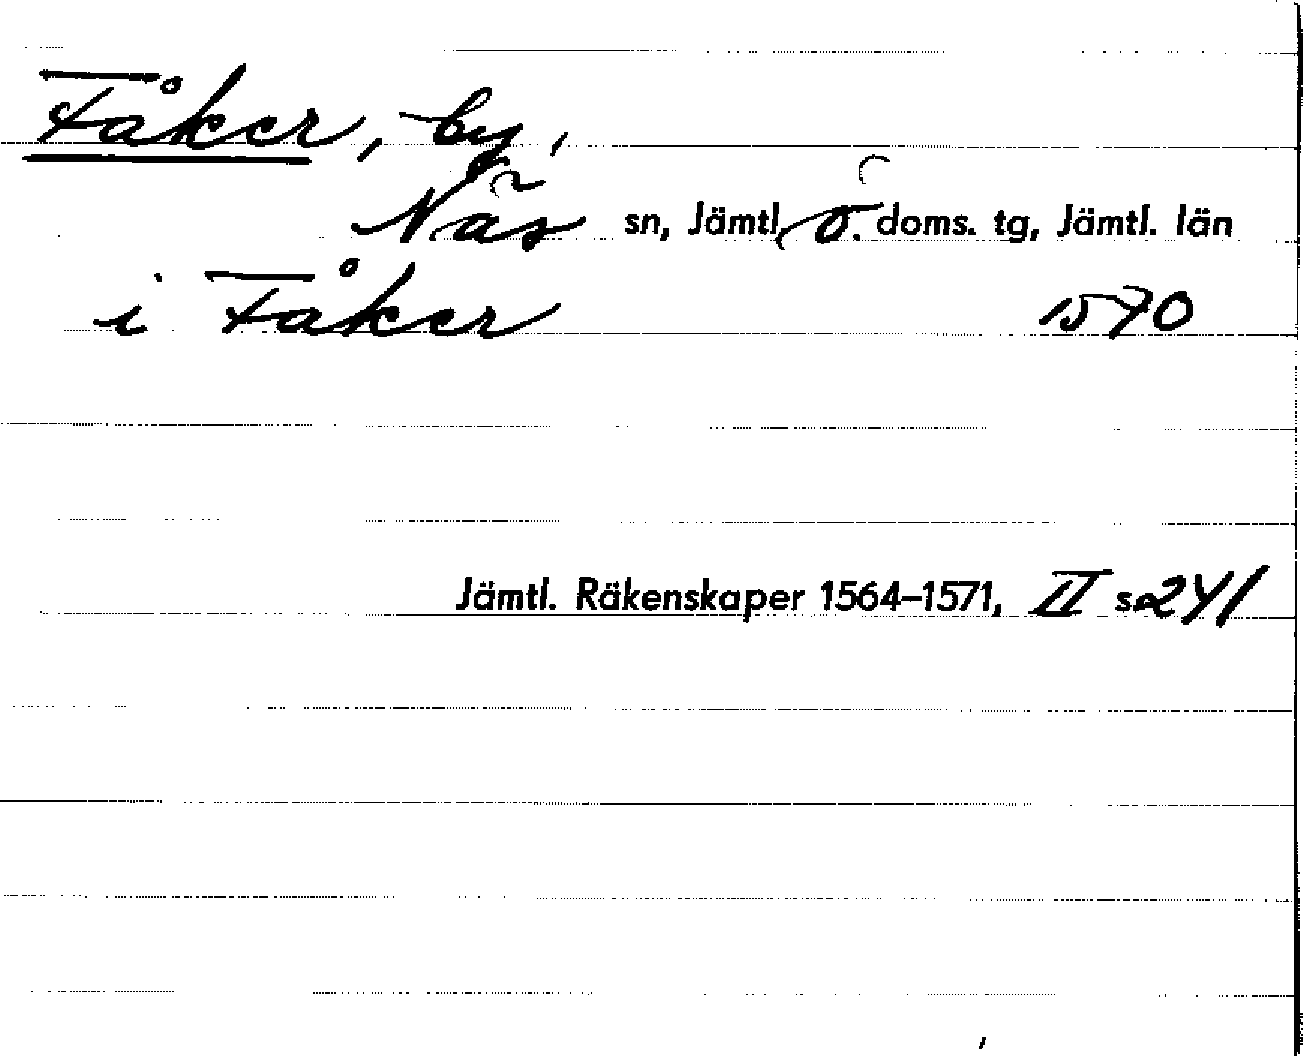 Fåker, by,
Näs sn, Jämtl. ö. doms. tg, Jämtl. län
i Fåker 1570
Jämtl. Räkenskaper 1564–1571, II s. 241